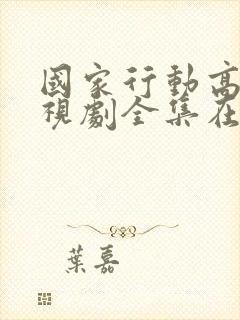 國家行動高
視劇全集在
葉嘉